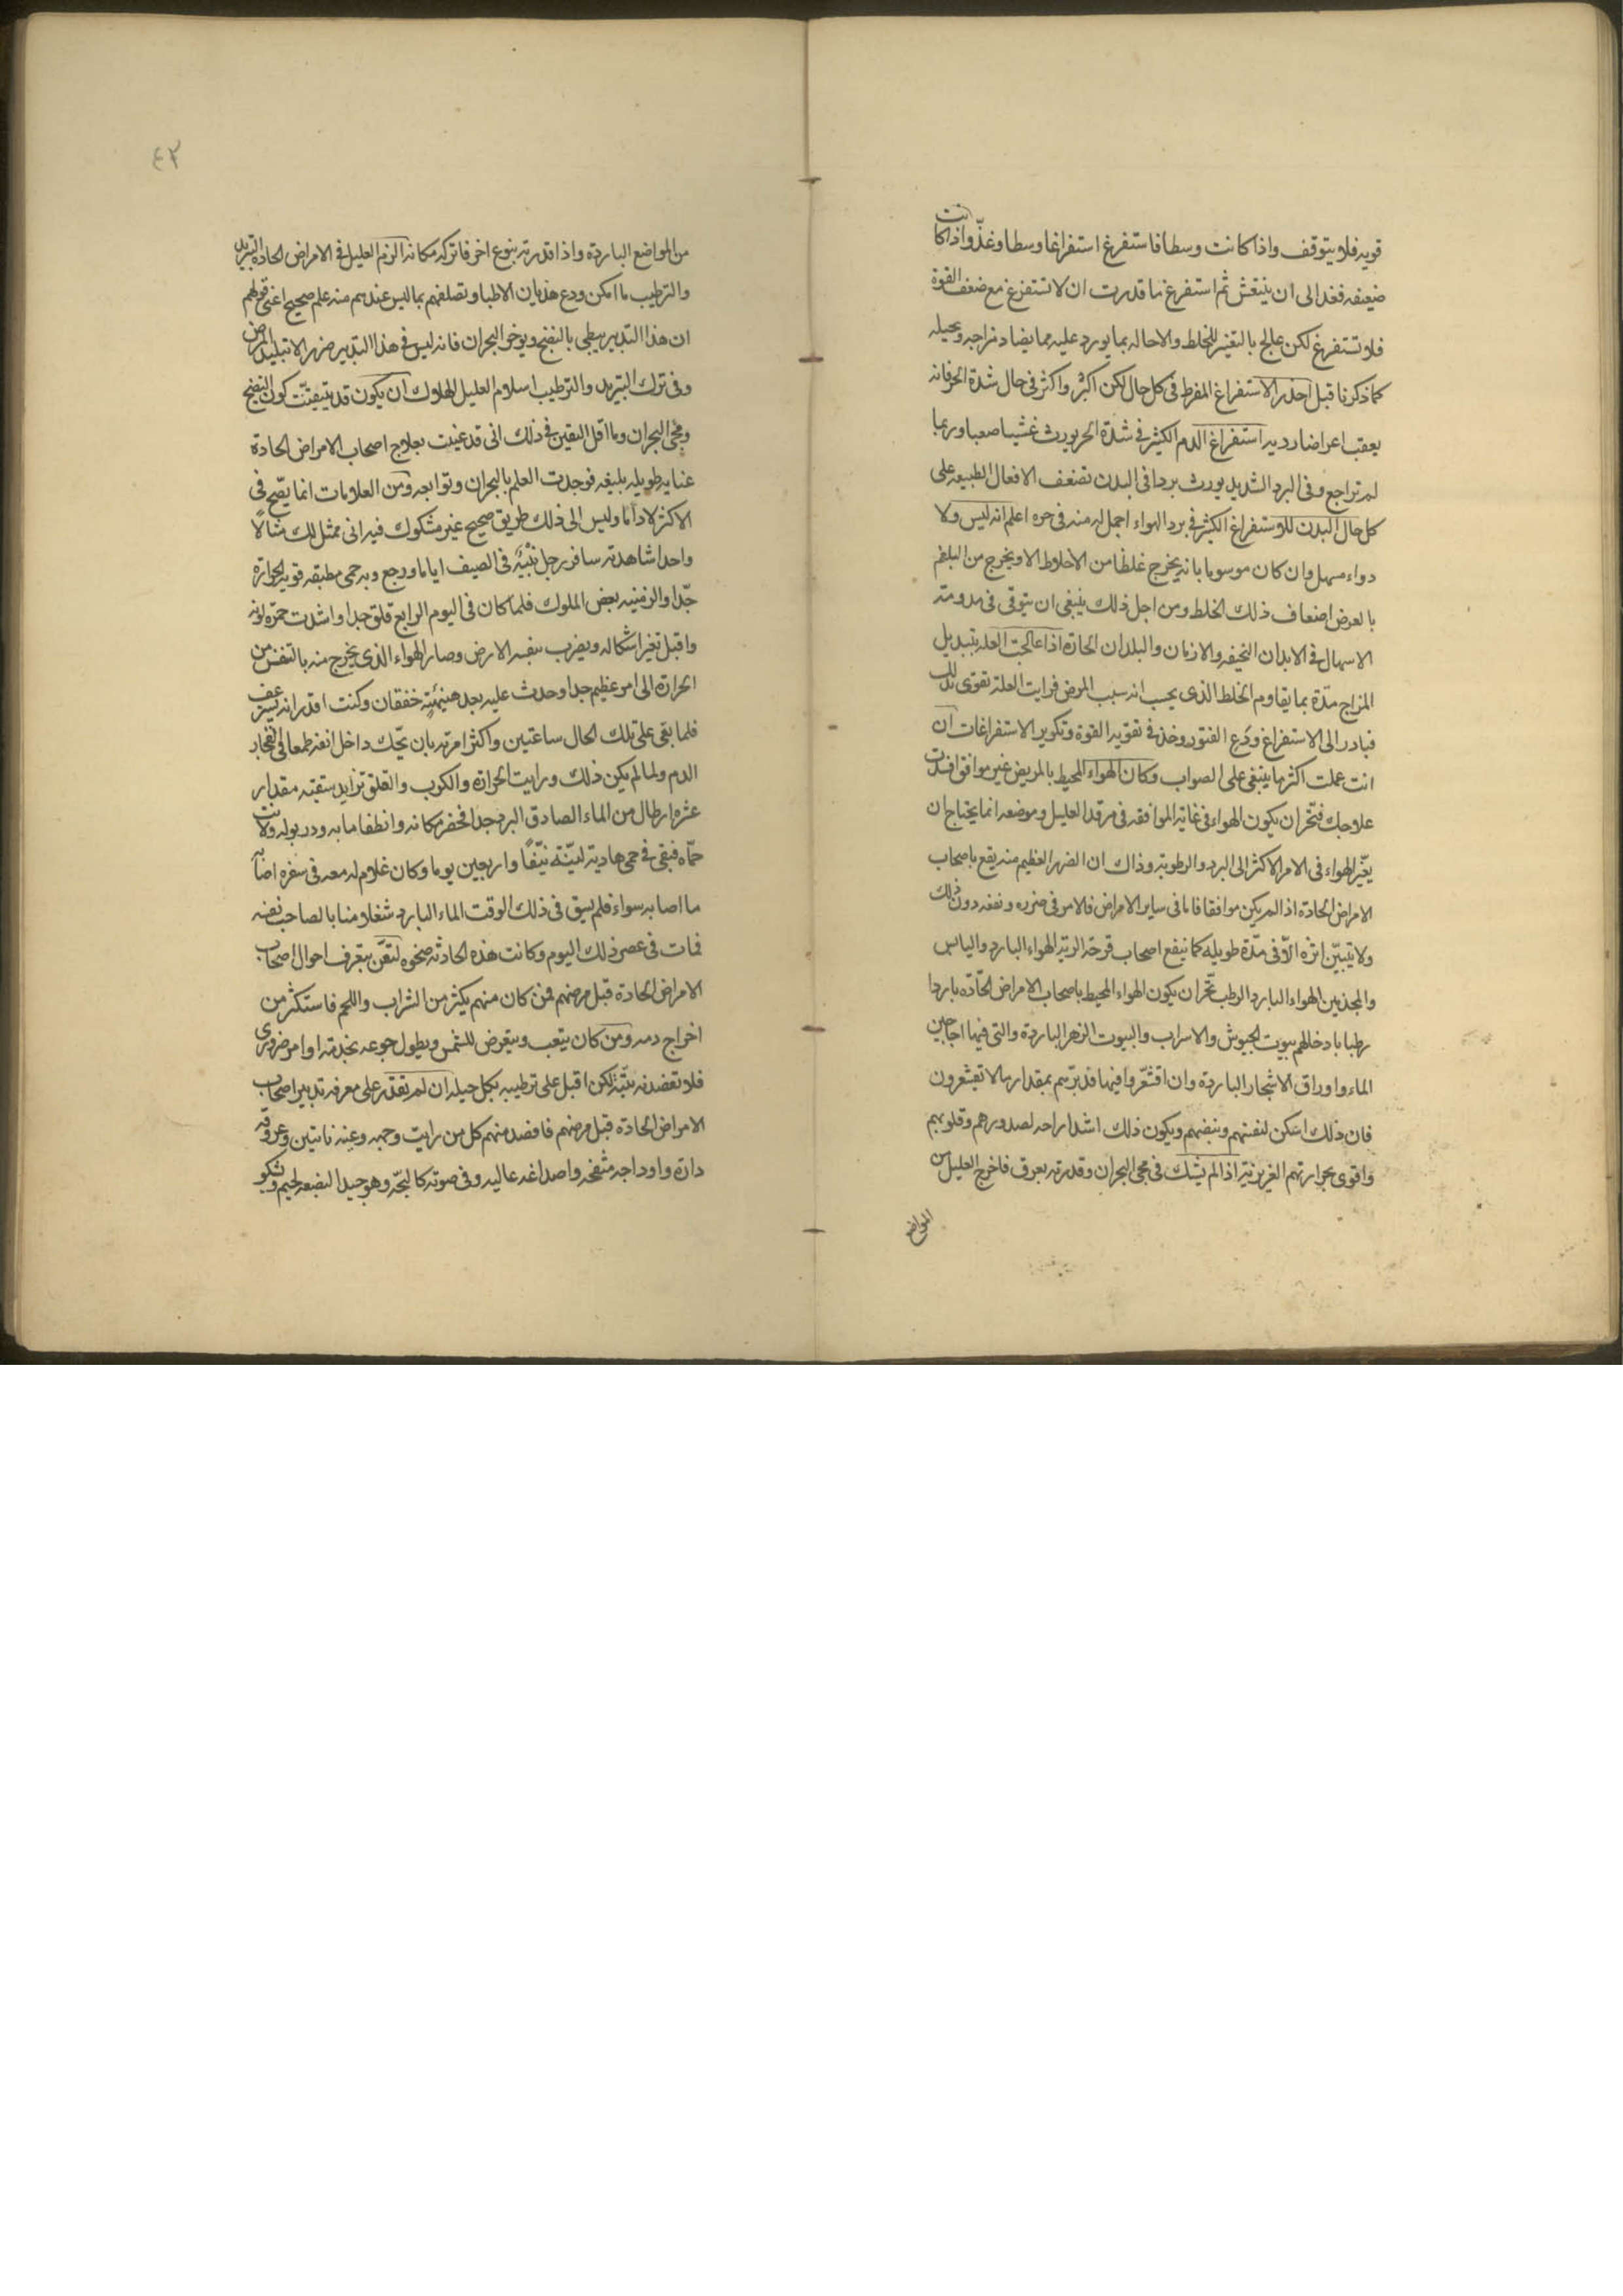 قويه فلا يتوقف واذا كانت وسطا فاستفرغ استفراغا وسطا وغذّ واذا كانت
ضعيفه فغذ الى ان ينتعش ثم استفرغ ما قدرت ان لا تستفرغ مع ضعف القوة
فلا تستفرغ لكن عالج بالتغيير للخلط والاحاله بما يورد عليه مما يضاد مزاجه ويحيله
كما ذكرنا قبل احذر الاستفراغ المفرط في كل حال لكن اكثر واكثر في حال شدة الحر فانه
يعقب اعراضا رديه استفراغ الدم الكثير في شدة الحر يورث غشيا صعبا وربما
لم تراجع وفى البرد الشديد يورث بردا فى البدن تضعف الافعال الطبيعه على
كل حال البدن للاستفراغ الكثير في برد الهواء احمل له منه فى حره اعلم انه ليس ولا
دواء مسهل وان كان موسوما بانه يخرج غلظا من الاخلاط الا ويخرج من البلغم
بالعرض اضعاف ذلك الخلط ومن اجل ذلك ينبغى ان يتوقى فى مدومته
الاسهال في الابدان النحيفه والازمان والبلدان الحارة اذا عالجت العله بتبديل
المزاج مدّة بما يقاوم الخلط الذى يحسب انه سبب المرض فرايت العلة تقوى بذلك
فبادر الى الاستفراغ ودع الفتور وخذ في تقويه القوة وتكوير الاستفراغات ان
انت عملت اكثر ما ينبغى على الصواب وكان الهواء المحيط بالمريض غير موافق افسدت
علاجك فتحّر ان يكون الهواء فى غاية الموافقه فى مرقد العليل وموضعه انما يحتاج ان
يغيّر الهواء فى الامر الاكثر الى البرد والرطوبة وذاك ان الضرر العظيم منه يقع باصحاب
الامراض الحادة اذا لم يكن موافقا فاما فى ساير الامراض فالامر فى ضرره ونفعه دون ذلك
ولا يتبيّن اثره الّا فى مدّة طويله كما ينفع اصحاب قرحة الرية الهواء البارد واليابس
والمجذمين الهواء البارد الرطب تحّر ان يكون الهواء المحيط باصحاب الامراض الحادّه باردا
رطبا بادخالهم بيوت الجيوش والاسراب والبيوت الزهر الباردة والتى فيها اجاجين
الماء واوراق الاشجار الباردة وان اقشعّروا فيها فدثّرهم بمقدار ما لا تقشعرون
فان ذلك اسكن لنفسهم ونبضهم ويكون ذلك اشد اراحه لصدورهم وقلوبهم
واقوى بحرارتهم الغريزية اذا لم يشك فى مجى البحران وقدرته بعرق فاخرج العليل من
المواضع
٤٣
من المواضع الباردة واذا قدرته بنوع اخر فاتركه مكانه الزم العليل في الامراض الحادة التبريد
والترطيب ما امكن ودع هذيان الاطبا وتصلفهم بما ليس عندهم منه علم صحيح اعنى قولهم
ان هذا التدبير يبطى بالنضج ويوخر البحران فانه ليس في هذا التدبير ضرر الا تبليد المرض
وفى ترك التبريد والترطيب اسلام العليل للهلاك ان يكون قد تيقنّت كون النضج
ومجى البحران وما اقل اليقين في ذلك انى قد عنيت بعلاج اصحاب الامراض الحادة
عنايه طويله بليغه فوجدت العلم بالبحران وتوابعه ومن العلامات انما يصّح فى
الاكثر لا دائما وليس الى ذلك طريق صحيح غير مشكوك فيه انى ممثل لك مثالًا
واحدا شاهدته سافر رجل في الصيف اياما ورجع وبه حمى مطبقه قوية الحرارة
جدّا والزمنيه بعض الملوك فلما كان فى اليوم الرابع قلق جدا واشتدت حمرة لونه
واقبل تغير اشكاله ويضرب بنفسه الارض وصار الهواء الذى يخرج منه بالتنفس من
الحرارة الى امر عظيم جدا وحدث عليه بعد هنيئة خفقان وكنت اقدر انه سيرعف
فلما بقى على تلك الحال ساعتين واكثر امرته بان يحّك داخل انفه طمعا في انفجار
الدم ولما لم يكن ذلك ورايت الحرارة والكرب والقلق تزايد سقيته مقدار
عشره ارطال من الماء الصادق البرد جدا فخصر مكانه وانطفا ما به ودر بوله ولانت
حمّاه فبقى في حمى هادية لينّة نيّفًا واربعين يوما وكان غلام له معه فى سفره اصابه
ما اصابه سواء فلم يسق فى ذلك الوقت الماء البارد شغلا منا بالصاحب نفسه
فمات فى عصر ذلك اليوم وكانت هذه الحادثه ضحوه لتعن بتعرف احوال اصحاب
الامراض الحادة قبل مرضهم فمن كان منهم يكثر من الشراب واللحم فاستكثر من
اخراج دمه ومن كان يتعب ويتعرض للشمس ويطول جوعه بخدمة او امر ضرورى
فلا تفصدنه بتّة لكن اقبل على ترطيبه بكل حيله ان لم تقدر على معرفه تدبير اصحاب
الامراض الحادة قبل مرضهم فافصد منهم كل من رايت وجهه وعينه ناتيتين وعروقه
دارّة واوداجه منتفخه واصداغه عاليه وفى صوته كالبحّه وهو جيد البضعه لحيم ويشكو